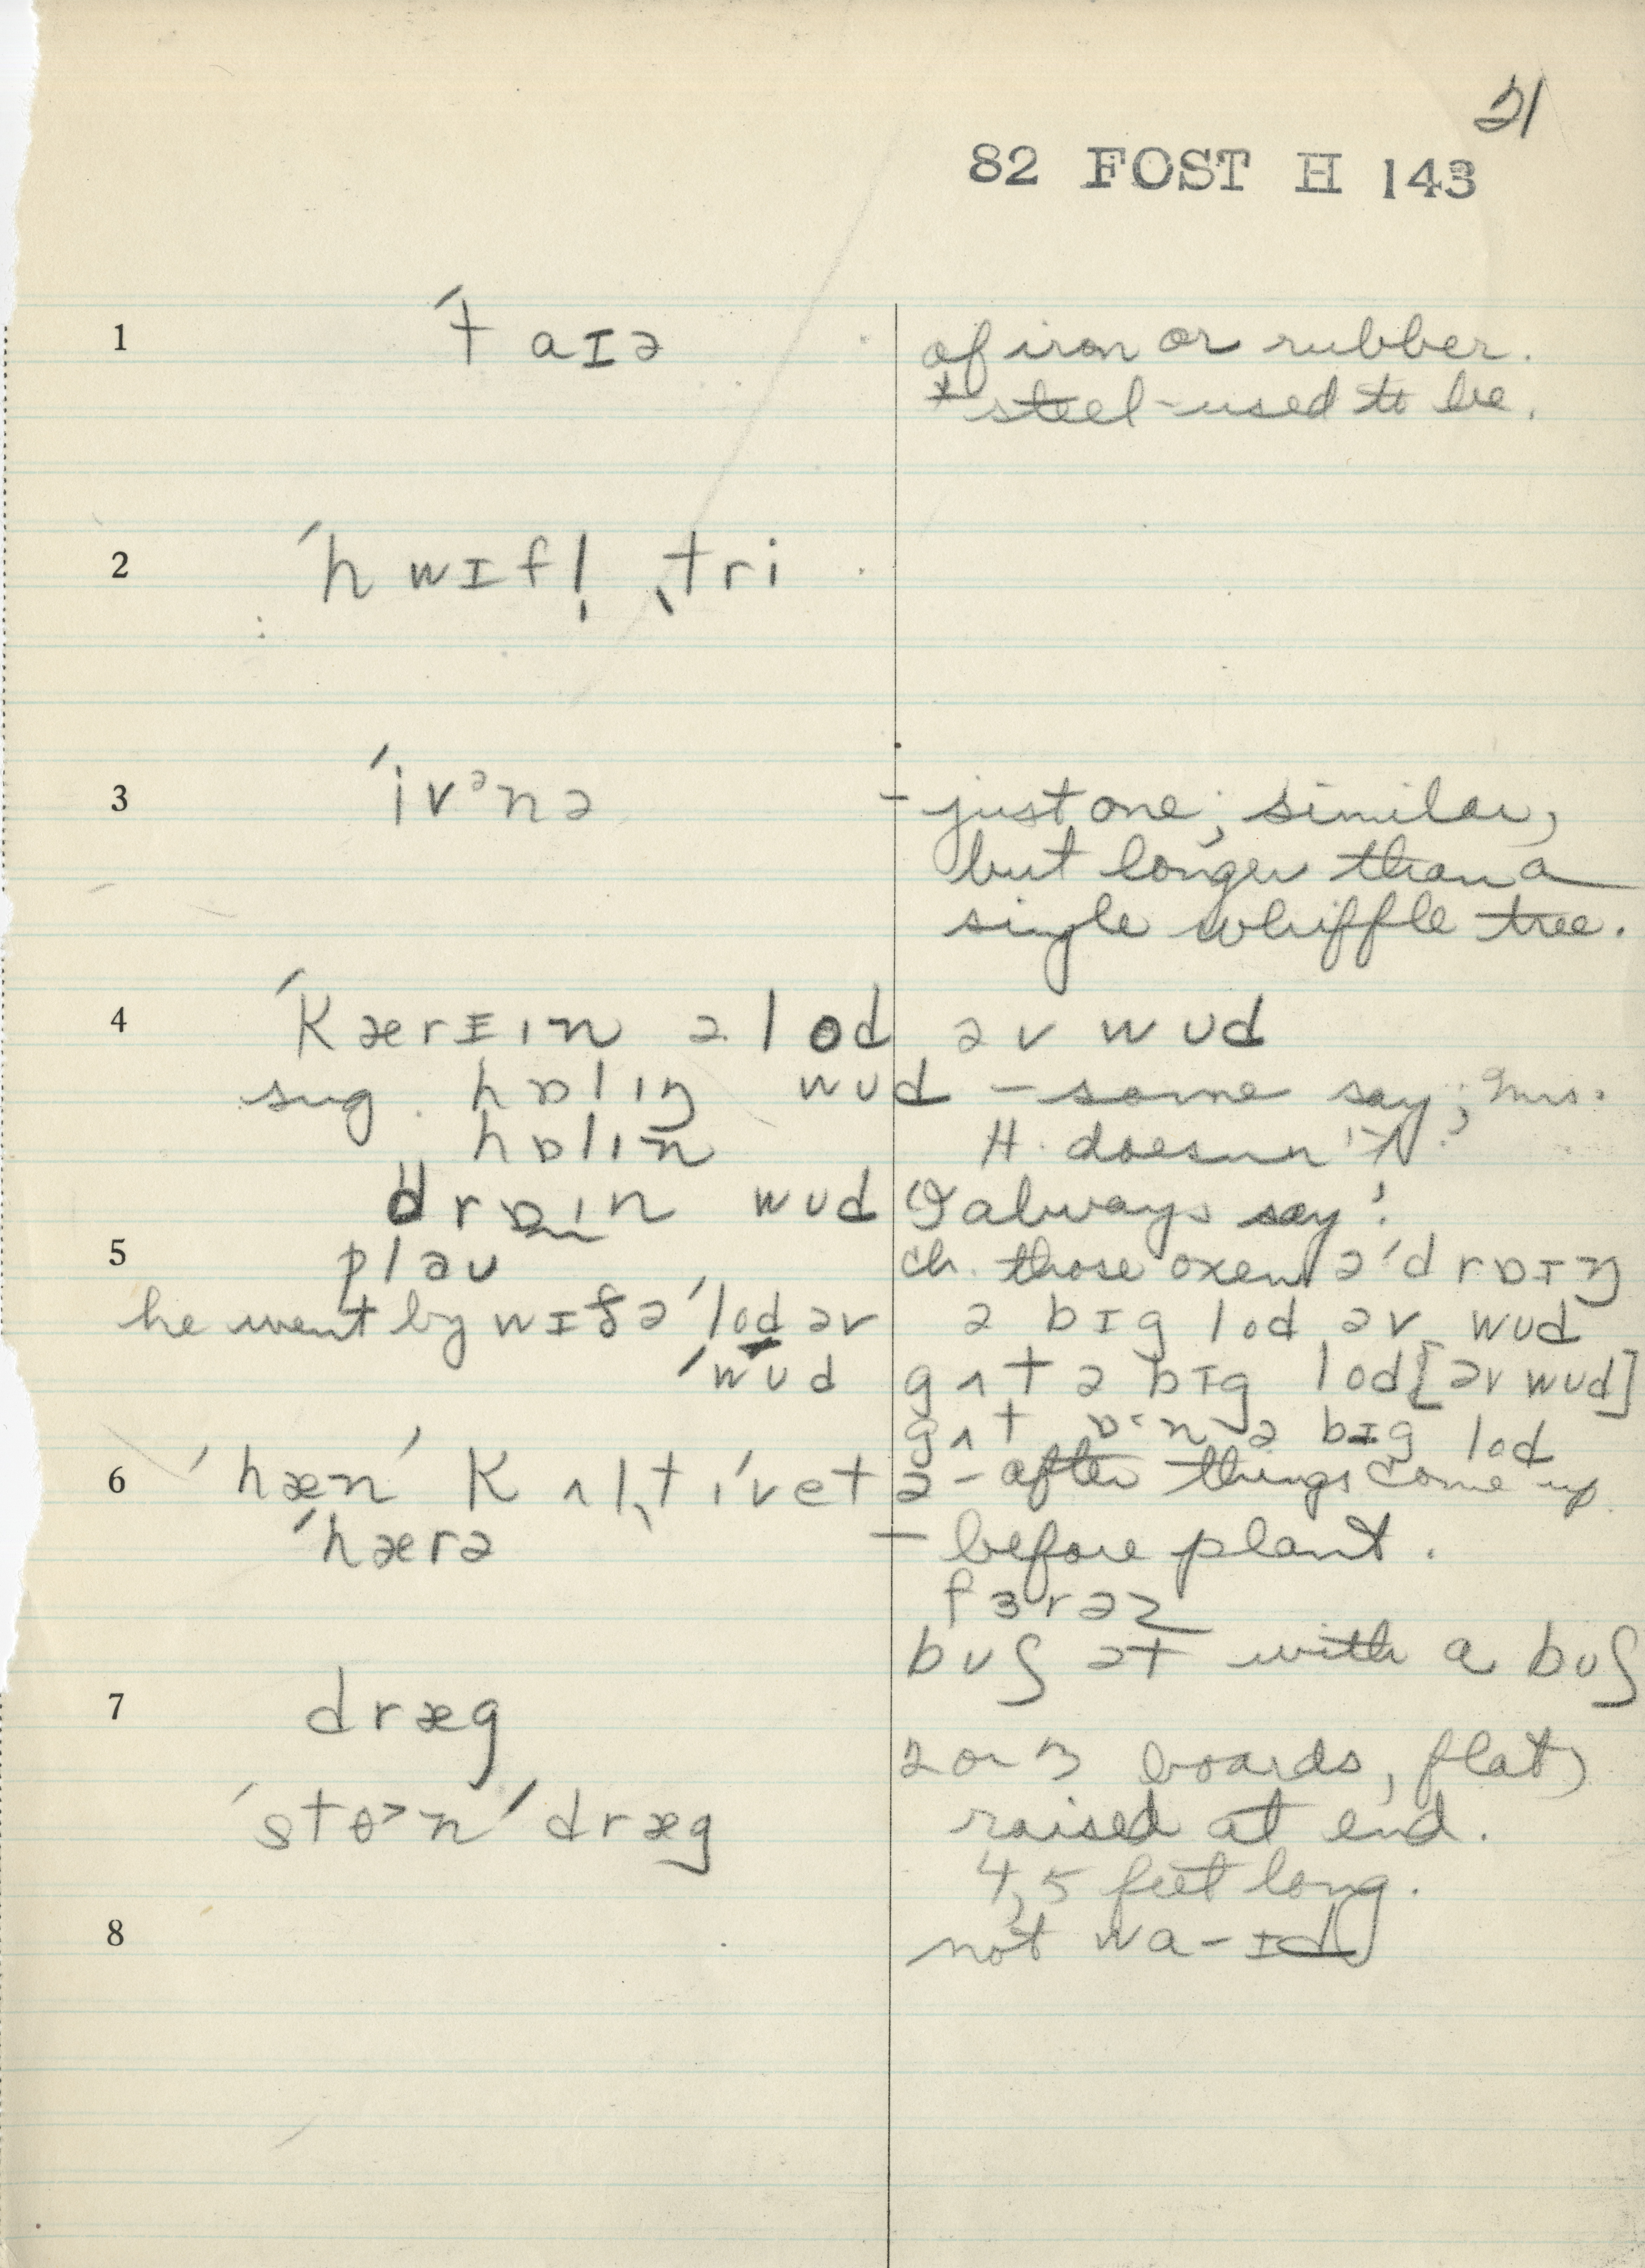 21
82 FOST H 143
1 ˈtaɪə of iron or rubber.
* steel - used to be.
2 ˈhwɪfl̩ ˌtri
3 ˈivᵊnə - just one; similar,
but longer than a
single whiffle tree.
4 ˈkærɪɪn ə lod əv wud
sug. hɒlɪŋ wud - some say; Mrs.
hɒlɪn H. doesn't.
drɒɪn wud "I always say".
5 plaʊ ch. those oxen əˈdrɒɪŋ
he went by wɪð ə ˈlod əv ə bɪg lod əv wud
ˈwud gʌt ə bɪg lod [əv wud]
gʌt ɒˑn ə bɪg lod
6 ˈhæn ˈkʌlˌtɪvetə - after things come up
ˈhærə - before plant.
fɜrəz
bʊʃ ət with a bʊʃ
7 dræg
2 or 3 boards, flat,
ˈstɵ˃n ˈdræg raised at end.
4, 5 feet long.
8 not wa-ɪd